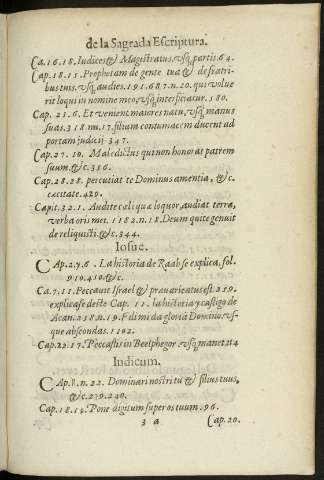 de la Sagrada Escriptura.
Ca. 16.18. Iudices & Magistratus, vsq; partis. 64.
Cap. 18.15. Prophetam de gente tua & de fratri
bus tuis. vsq; audies. 191. 687. n. 20. qui volue
rit loqui in nomine meo, vsq; interficiatur. 180.
Cap. 21.6. Et venient maiores natu, vsq; manus
suas. 318. nu. 17. filium contumacem ducent ad
portam judicij. 347.
Cap. 27. 16. Maledictus qui non honorat patrem
suum, &c. 356.
Cap. 28.28. percutiat te Dominus amentia, & c.
cæcitate. 420.
Capit. 32.1. Audite cæli quæ loquor, audiat terra,
verba oris mei. 1182. n. 18. Deum qui te genuit
dereliquisti. & c. 344.
Iosue.
CAp. 2.7.6. La historia de Raab se explica, fol.
910. 410. & c.
Ca. 7.11. Peccauit Israel & prævaricatus est. 219.
explicase deste Cap. 11. la historia y castigo de
Acan. 218. n. 19. Fili mi da gloriã Domino. vs-
que abscondas. 1102.
Cap. 22.17. Peccastis in Beelphegor. vsq; manet 214
Iudicum.
CAp. 8. n. 22. Dominari nostri tu & filius tuus,
&c. 239. 240.
Cap. 18.19. Pone digitum super os tuum. 96.
3 a Cap. 20.